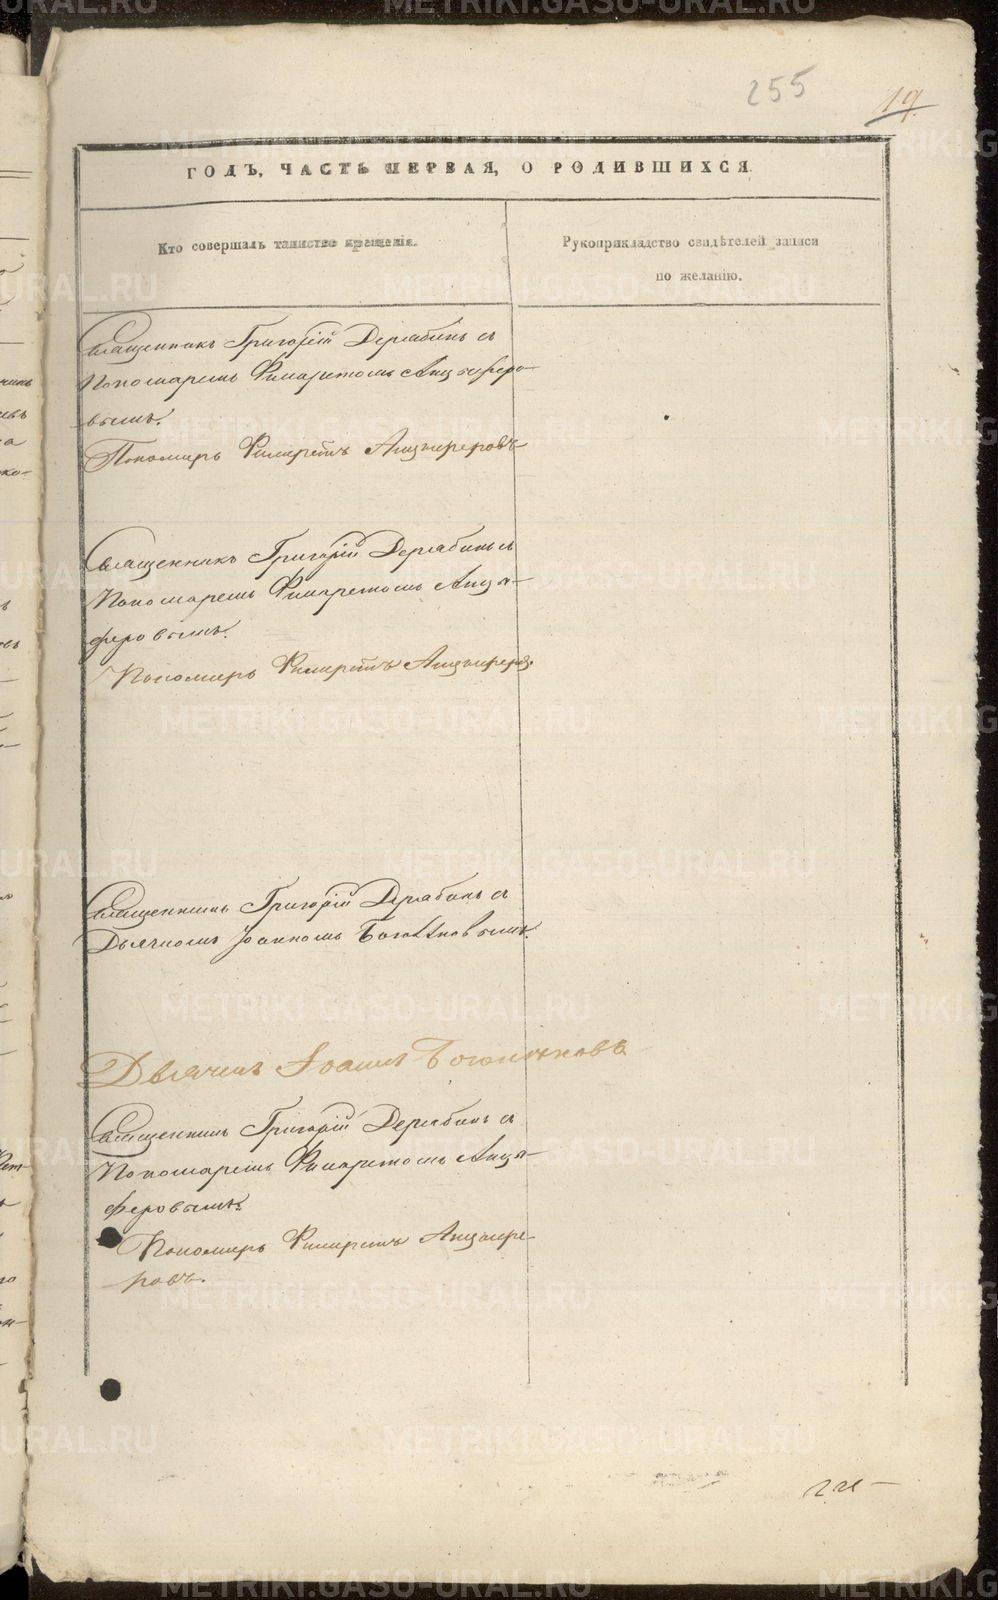 255
19.
ГОДЪ, ЧАСТЬ ПЕРВАЯ, О РОДИВШИХСЯ
Кто совершалъ таинство крещенія.
Рукоприкладство свидѣтелей записи
по желанію.
Священникъ Григорій Дерябинъ съ
Пономаремъ Филаретомъ Анцыферо-
вымъ.
Пономарь Филаретъ Анцыферовъ
Священникъ Григорій Дерябинъ съ
Пономаремъ Филаретомъ Анцы-
феровымъ.
Пономарь Филаретъ Анцыферовъ
Священникъ Григорій Дерябинъ съ
Дьячкомъ Іоанномъ
Дьячекъ Іоаннъ
Священникъ Григорій Дерябинъ съ
Пономаремъ Филаретомъ Анцы-
феровымъ.
Пономарь Филаретъ Анцыфе-
ровъ.
METRIKI.GASO-URAL.RU